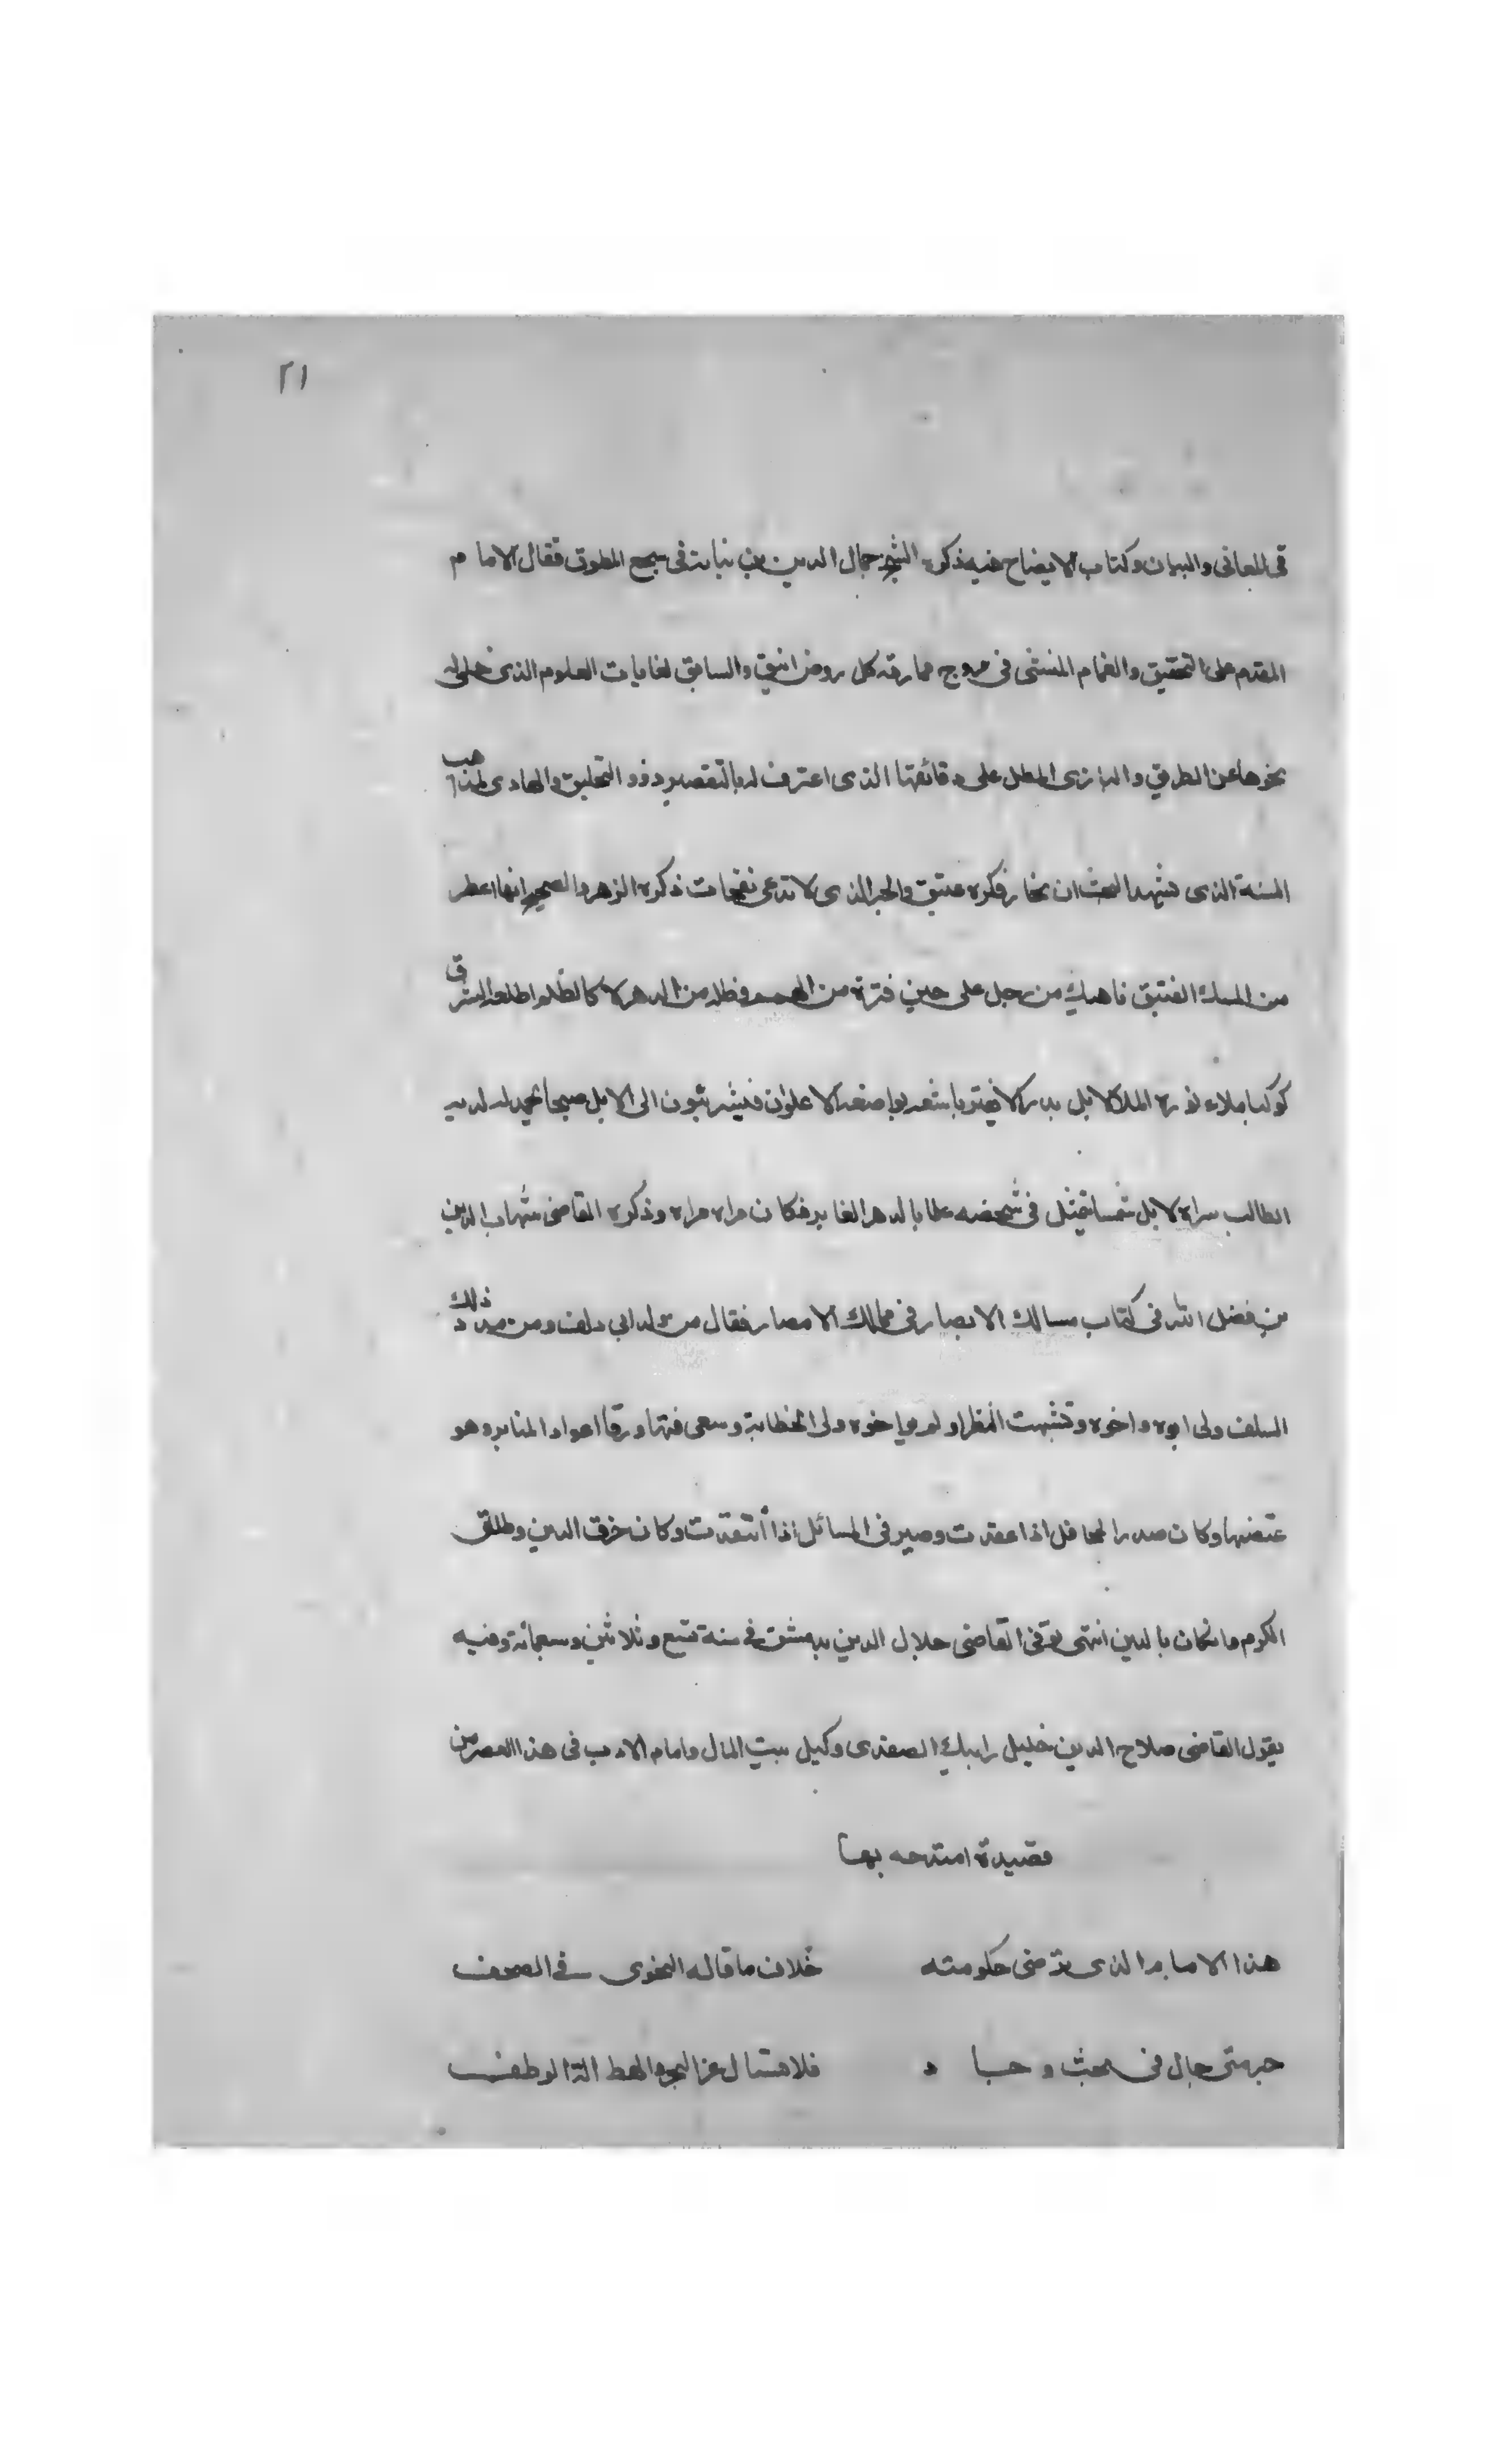 ٢١
فى المعانى والبيان وكتاب الايضاح فيه ذكره الشيخ جمال الدين بن نباته فى سجع المطوق فقال الامام
المقدم على التحقيق والغمام المنشى فى مروج مهارقه كل روض انيق والسابق لغايات العلوم الذى خلى له
نحوها عن الطريق والرازى المطل على دقائقها الذى اعترف له بالتقصير ذوو التحليق والهادى لمذاهب
السنة الذى يشهد البحث ان بحار فكره عتيق والحبر الذى لا تدعى نفحات ذكره الزهر والصحيح انها اعطر
من المسك الفتيق ناهيك من رجل على حين فترة من الهمم وظله من الدهر لا كالظلم اطلعه الشرق
كوكبا ملاء نوره الملا لا بل بدرا لا يغتر باشعه بواضعه الاعلون فيشرئبون الى الا بل صبحا يحمد له لديه
الطالب سراه لا بل شمسا يتمثل فى شخصه علما بالدهر الغابر فكان مراه مراه وذكره القاضى شهاب الدين
بن فضل الله فى كتاب مسالك الابصار فى ممالك الامصار فقال من ولد ابى دلف ومن مدد ذلك
السلف ولى ابوه واخوه وتشبهت النظراء ولم يواخوه ولى الخطابة وسعى فتها ورقا اعواد المنابر وهو
غضنها وكان صدر المحافل اذا عقدت وصير فى المسائل اذا انتقدت وكان خرق اليدين وطلق
الكرم ما كان باليدين انتهى توفى القاضى جلال الدين بدمشق فى سنة تسع وثلاثين وسبعمائة وفيه
يقول القاضى صلاح الدين خليل ايبك الصفدى وكيل بيت المال وامام الادب فى هذا العصر من
قصيدة امتدحه بها
هذا الامام الذى ترضى حكومته خلاف ما قاله النحوى فى الصحف
حبر متى جال فى بحث وجاد فلا تسال عن البحر والهطالة الوطف